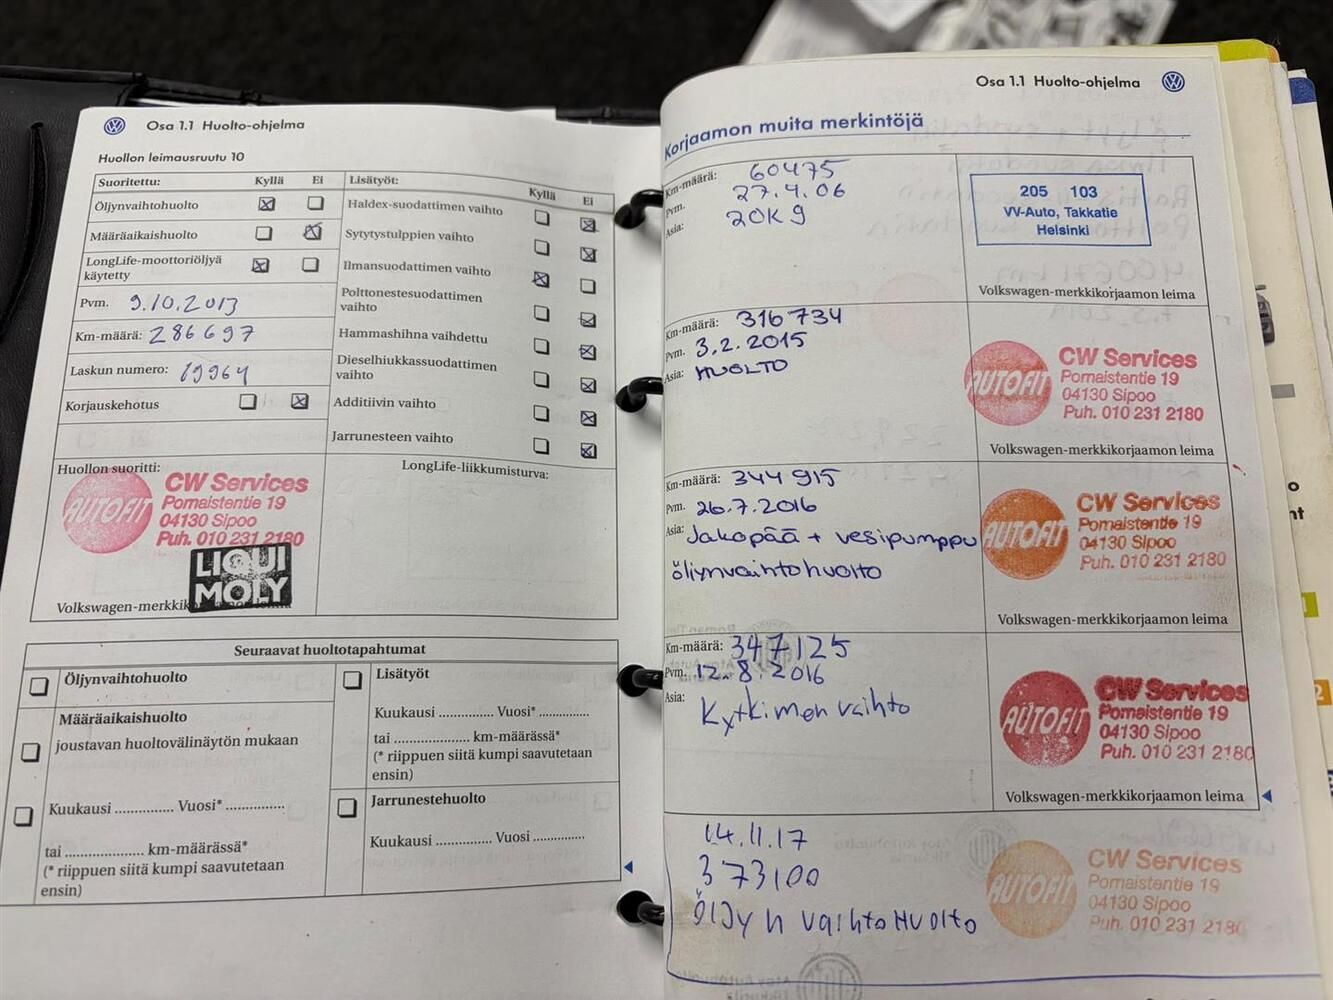 Osa 1.1 Huolto-ohjelma
Huollon leimausruutu 10
Suoritettu: Kyllä Ei
Öljynvaihtohuolto
Määräaikaishuolto
LongLife-moottoriöljyä
käytetty
Pvm. 9.10.2013
Km-määrä: 286697
Laskun numero: 19964
Korjauskehotus
Lisätyöt: Kyllä Ei
Haldex-suodattimen vaihto
Sytytystulppien vaihto
Ilmansuodattimen vaihto
Polttonestesuodattimen
vaihto
Hammashihna vaihdettu
Dieselhiukkassuodattimen
vaihto
Additiivin vaihto
Jarrunesteen vaihto
Huollon suoritti:
AUTOFIT
CW Services
Pornaistentie 19
04130 Sipoo
Puh. 010 231 2180
LIQUI
MOLY
Volkswagen-merkki
LongLife-liikkumisturva:
Seuraavat huoltotapahtumat
Öljynvaihtohuolto
Määräaikaishuolto
joustavan huoltovälinäytön mukaan
Kuukausi ............... Vuosi* ...............
tai .................... km-määrässä*
(* riippuen siitä kumpi saavutetaan
ensin)
Lisätyöt
Kuukausi .............. Vuosi* .............
tai .................. km-määrässä*
(* riippuen siitä kumpi saavutetaan
ensin)
Jarrunestehuolto
Kuukausi .............. Vuosi .............
Osa 1.1 Huolto-ohjelma
Korjaamon muita merkintöjä
Km-määrä: 60475
Pvm. 27.4.06
Asia: 20K9
205 103
VV-Auto, Takkatie
Helsinki
Volkswagen-merkkikorjaamon leima
Km-määrä: 316734
Pvm. 3.2.2015
Asia: HUOLTO
AUTOFIT
CW Services
Pornaistentie 19
04130 Sipoo
Puh. 010 231 2180
Volkswagen-merkkikorjaamon leima
Km-määrä: 344915
Pvm. 26.7.2016
Asia: Jakopää + vesipumppu
öljynvaihtohuolto
AUTOFIT
CW Services
Pornaistentie 19
04130 Sipoo
Puh. 010 231 2180
Volkswagen-merkkikorjaamon leima
Km-määrä: 347125
Pvm. 12.8.2016
Asia: Kytkimen vaihto
AUTOFIT
CW Services
Pornaistentie 19
04130 Sipoo
Puh. 010 231 2180
Volkswagen-merkkikorjaamon leima
14.11.17
373100
ÖLJYN VAIHTOHUOLTO
AUTOFIT
CW Services
Pornaistentie 19
04130 Sipoo
Puh. 010 231 2180